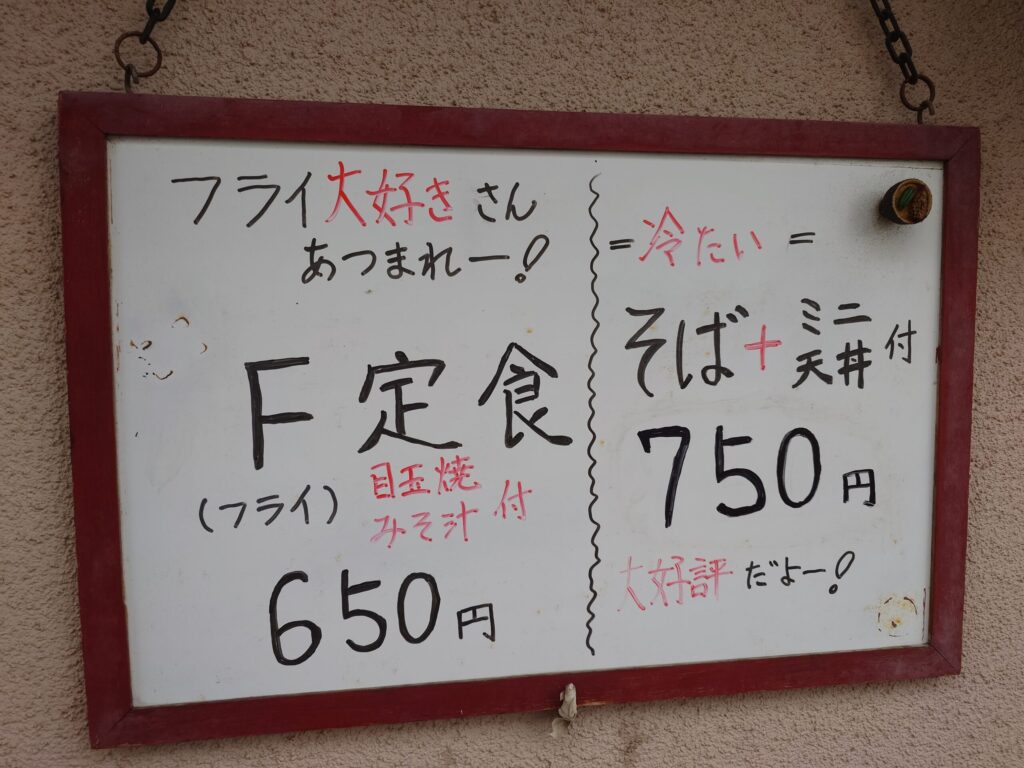 フライ大好きさん
あつまれー!
F定食
(フライ)
目玉焼
みそ汁 付
650円
=冷たい=
そば+ミニ
天丼 付
750円
大好評だよー!